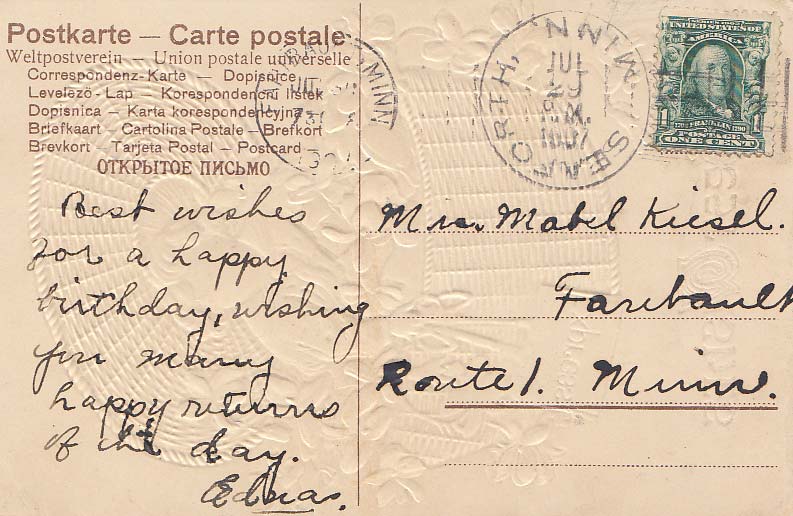 Postkarte — Carte postale
Weltpostverein — Union postale universelle
Correspondenz-Karte — Dopisnice
Levelezö-Lap — Korespondencni listek
Dopisnica — Karta korespondencyjna
Briefkaart — Cartolina Postale — Brefkort
Brevkort — Tarjeta Postal — Postcard
ОТКРЫТОЕ ПИСЬМО
MINN
SEAFORTH, MINN
JUL
29
1907
SERIES 1902
UNITED STATES OF
AMERICA
FRANKLIN
1 POSTAGE 1
ONE CENT
Best wishes
for a happy
birthday, wishing
you many
happy returns
of the day.
Edna.
Mrs. Mabel Kiesel.
Faribault
Route 1. Minn.